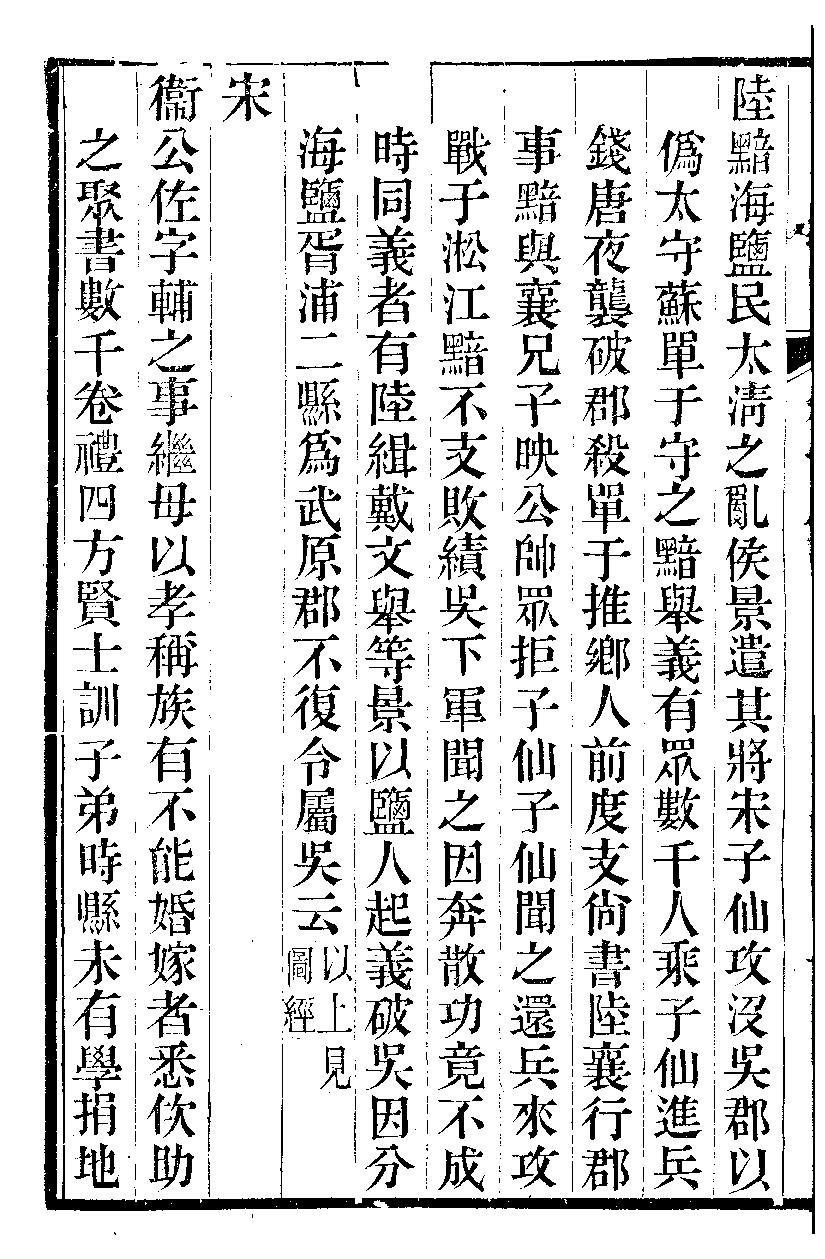 陸黯海鹽民太淸之亂侯景遣其將宋子仙攻沒吳郡以
僞太守蘇單于守之黯舉義有眾數千人乘子仙進兵
錢唐夜襲破郡殺單于推鄉人前度支尙書陸襄行郡
事黯與襄兄子映公帥眾拒子仙子仙聞之還兵來攻
戰于淞江黯不支敗績吳下軍聞之因奔散功竟不成
時同義者有陸緝戴文舉等景以鹽人起義破吳因分
海鹽胥浦二縣爲武原郡不復令屬吳云以上見圖經
宋
衞公佐字輔之事繼母以孝稱族有不能婚嫁者悉佽助
之聚書數千卷禮四方賢士訓子弟時縣未有學捐地